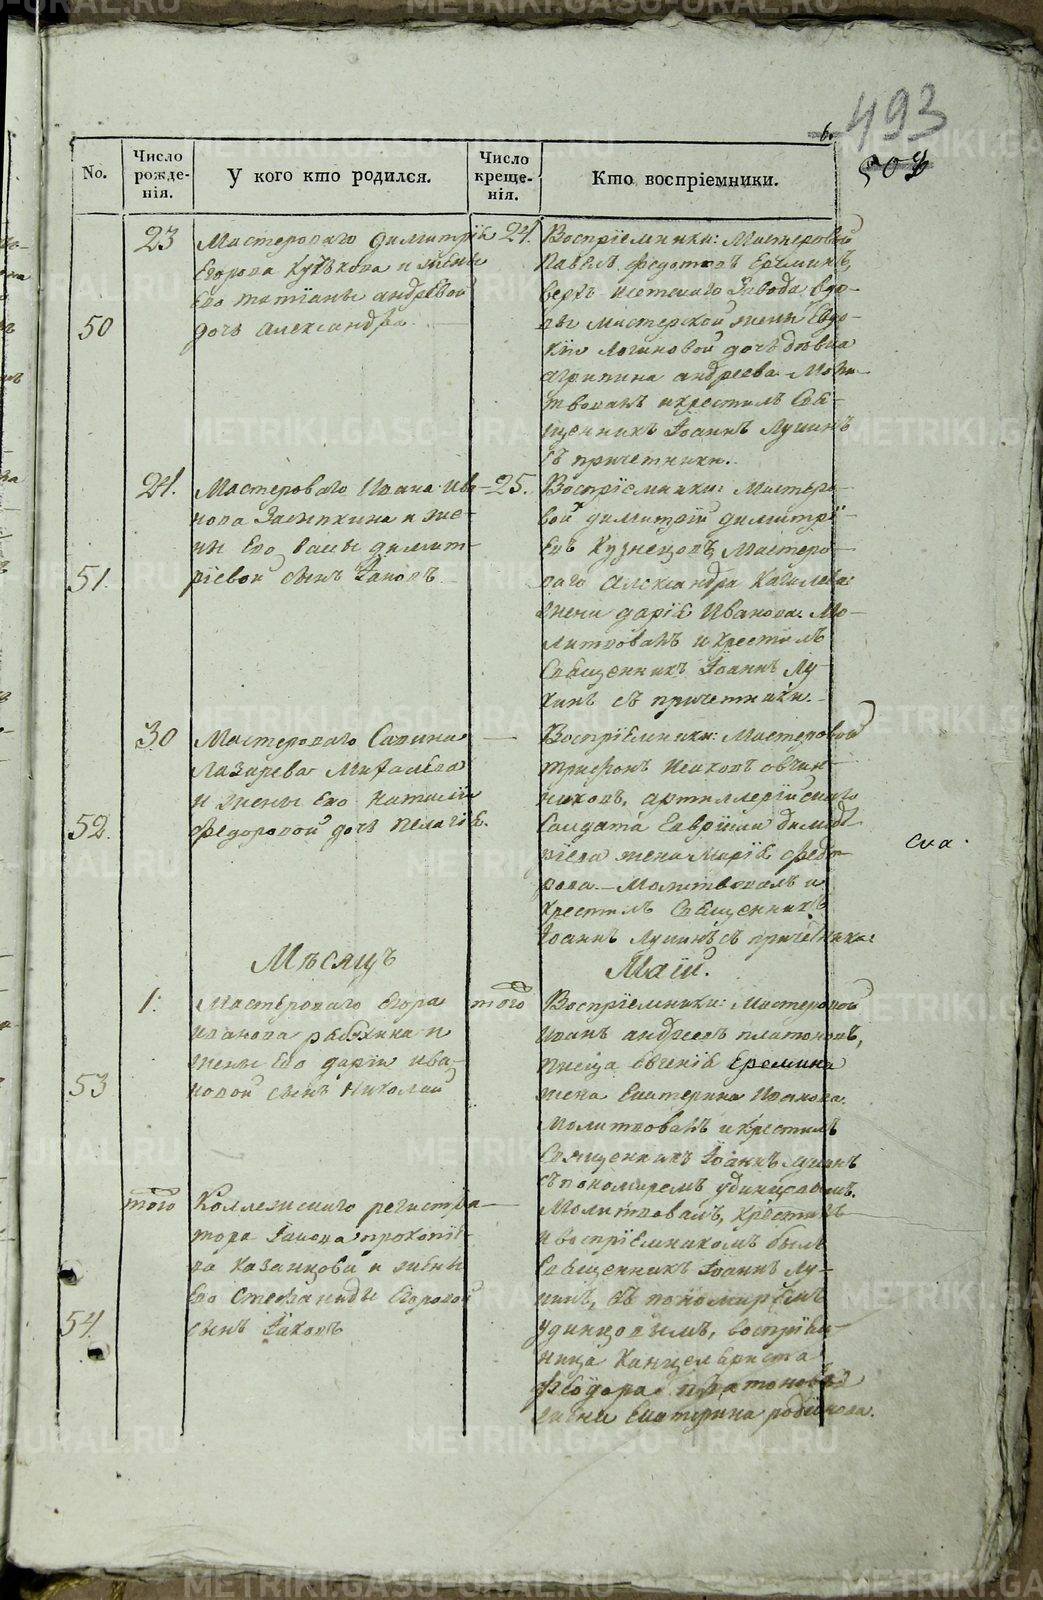 493
6.
No.
Число рожде-нія.
У кого кто родился.
Число креще-нія.
Кто воспріемники.
50
23
Мастероваго Димитрія
Егорова и жены
Его татіаны андреевой
дочь Александра.
24.
Воспріемники: Мастеровой
Павелъ Федотовъ Ереминъ,
верхъ исетскаго Завода вдо-
вы мастерской жены Евдо-
кіи Логиновой дочь дѣвка
агрипина андреева. Моли-
твовалъ и крестилъ Свя-
щенникъ Іоаннъ Лукинъ
съ причетники.
51.
24.
Мастероваго Ивана Ива-
нова и же-
ны Его Васы димит-
ріевой сынъ Іаковъ
25.
Воспріемники: Мастеро-
вой димитрій димитрі-
евъ Кузнецовъ, Мастеро-
ваго Александра
жена даріѣ Иванова. Мо-
литвовалъ и крестилъ
Священникъ Іоаннъ Лу-
кинъ съ причетники.
52.
30
Мастероваго Савина
Лазарева
и жены Его Наталіи
Федоровой дочь Пелагіѣ.
Воспріемники: Мастеровой
трифонъ Исаковъ овчин-
никовъ, артиллерійскаго
Солдата Гавріила
жена Маріѣ Федо-
рова. Молитвовалъ и
крестилъ Священникъ
Іоаннъ Лукинъ съ причетники:
Мѣсяцъ
Маій.
53
1:
Мастероваго Егора
иванова и
жены Его даріи ива-
новой сынъ Николай
того
Воспріемники: Мастеровой
Иванъ андреевъ платоновъ,
писца Еремина
жена Екатерина Иванова.
Молитвовалъ и крестилъ
Священникъ Іоаннъ Лукинъ
съ пономаремъ удинцовымъ.
54.
того
Коллежскаго регистра-
тора Іакова прокопіе-
ва Казанцова и жены
Его Стефаниды Егоровой
сынъ Іаковъ
Молитвовалъ, крестилъ
и воспріемникомъ былъ
Священникъ Іоаннъ Лу-
кинъ, съ пономаремъ
удинцовымъ, воспріем-
ница Канцеляриста
Феодора платонова
жена Екатерина родіонова.
METRIKI.GASO-URAL.RU